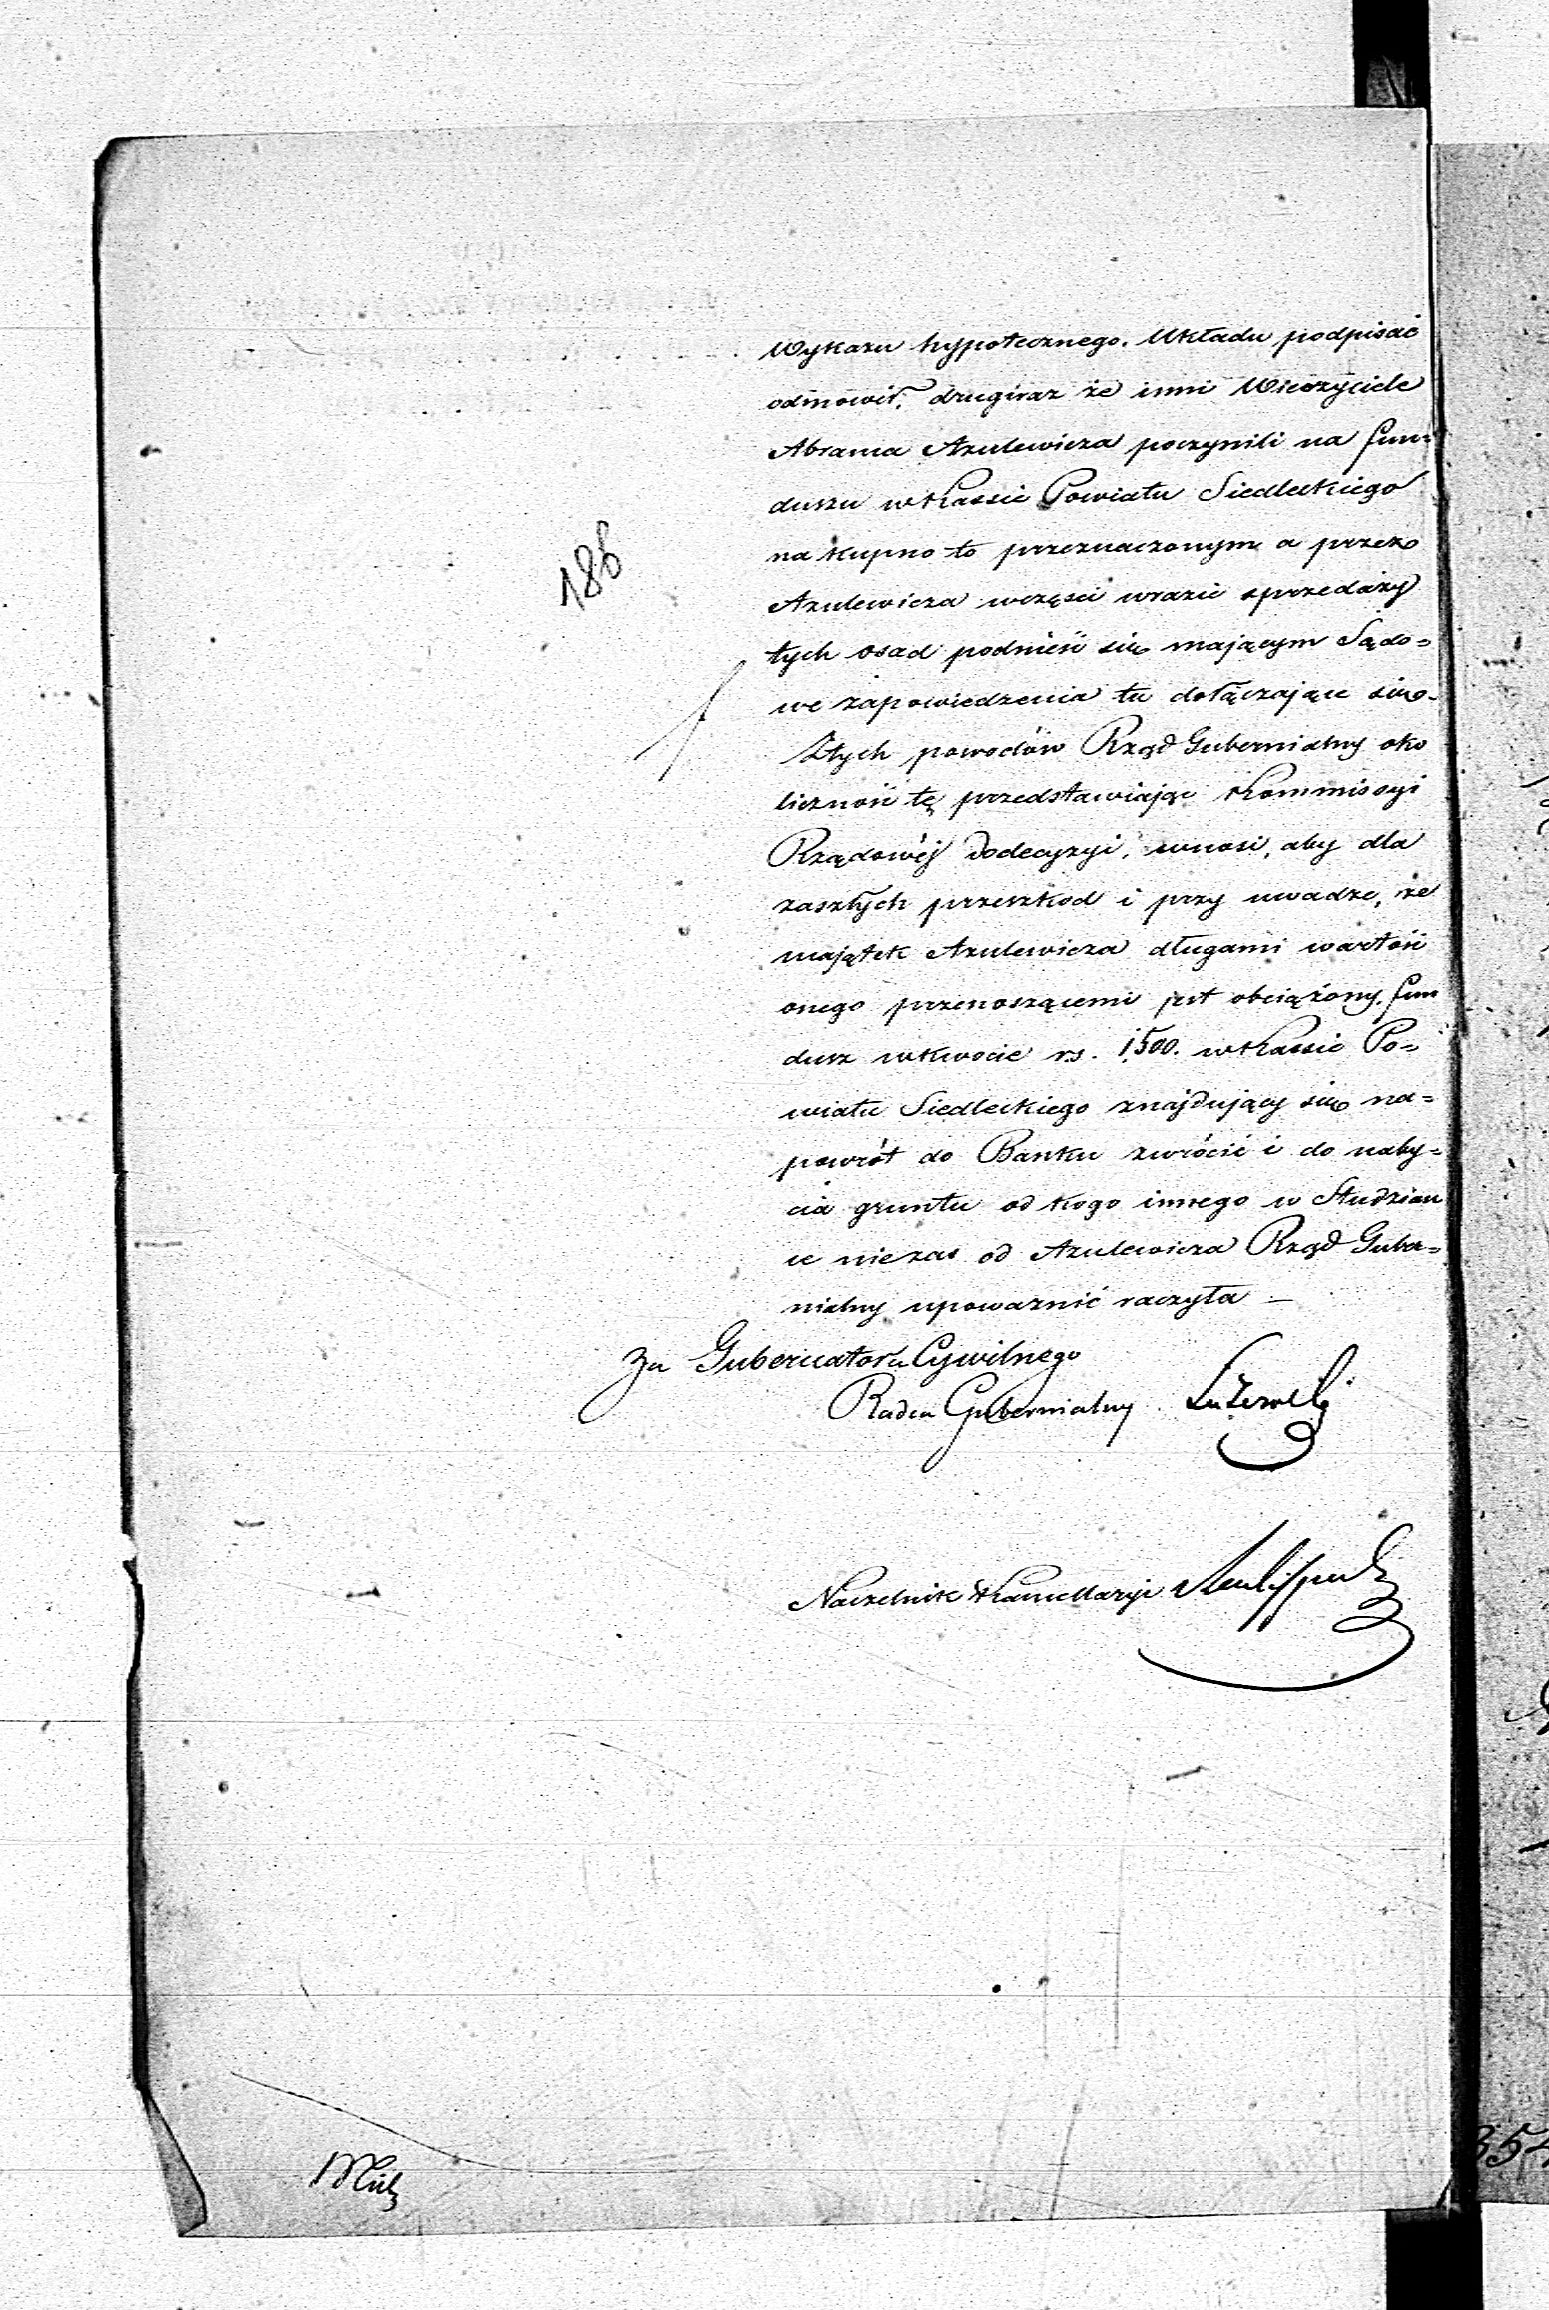 Wykazu hypotecznego. Układu podpisać
odmówił, drugiraz że inni Wierzyciele
Abrama Azulewicza poczynili na fun=
duszu w Kassie Powiatu Siedleckiego
na kupno to przeznaczonym a przez
Azulewicza w części w razie sprzedaży
tych osad podnieść się mającym Sądo=
we zapowiedzenia tu dołączające się.
Z tych powodów Rząd Gubernialny oko
liczność tę przedstawiając Kommissyi
Rządowéj do decyzyi, wnosi, aby dla
zaszłych przeszkod i przy uwadze, że
majątek Azulewicza długami wartość
onego przenoszącemi jest obciążony, fun
dusz w kwocie rs. 1,500. w Kassie Po=
wiatu Siedleckiego znajdujący się na=
powrót do Banku zwrócić i do naby=
cia gruntu od kogo innego w Studzian
ce nie zas od Azulewicza Rząd Guber=
nialny upoważnić raczyła —
Za Gubernatora Cywilnego
Radca Gubernialny
Naczelnik Kancellaryi
186